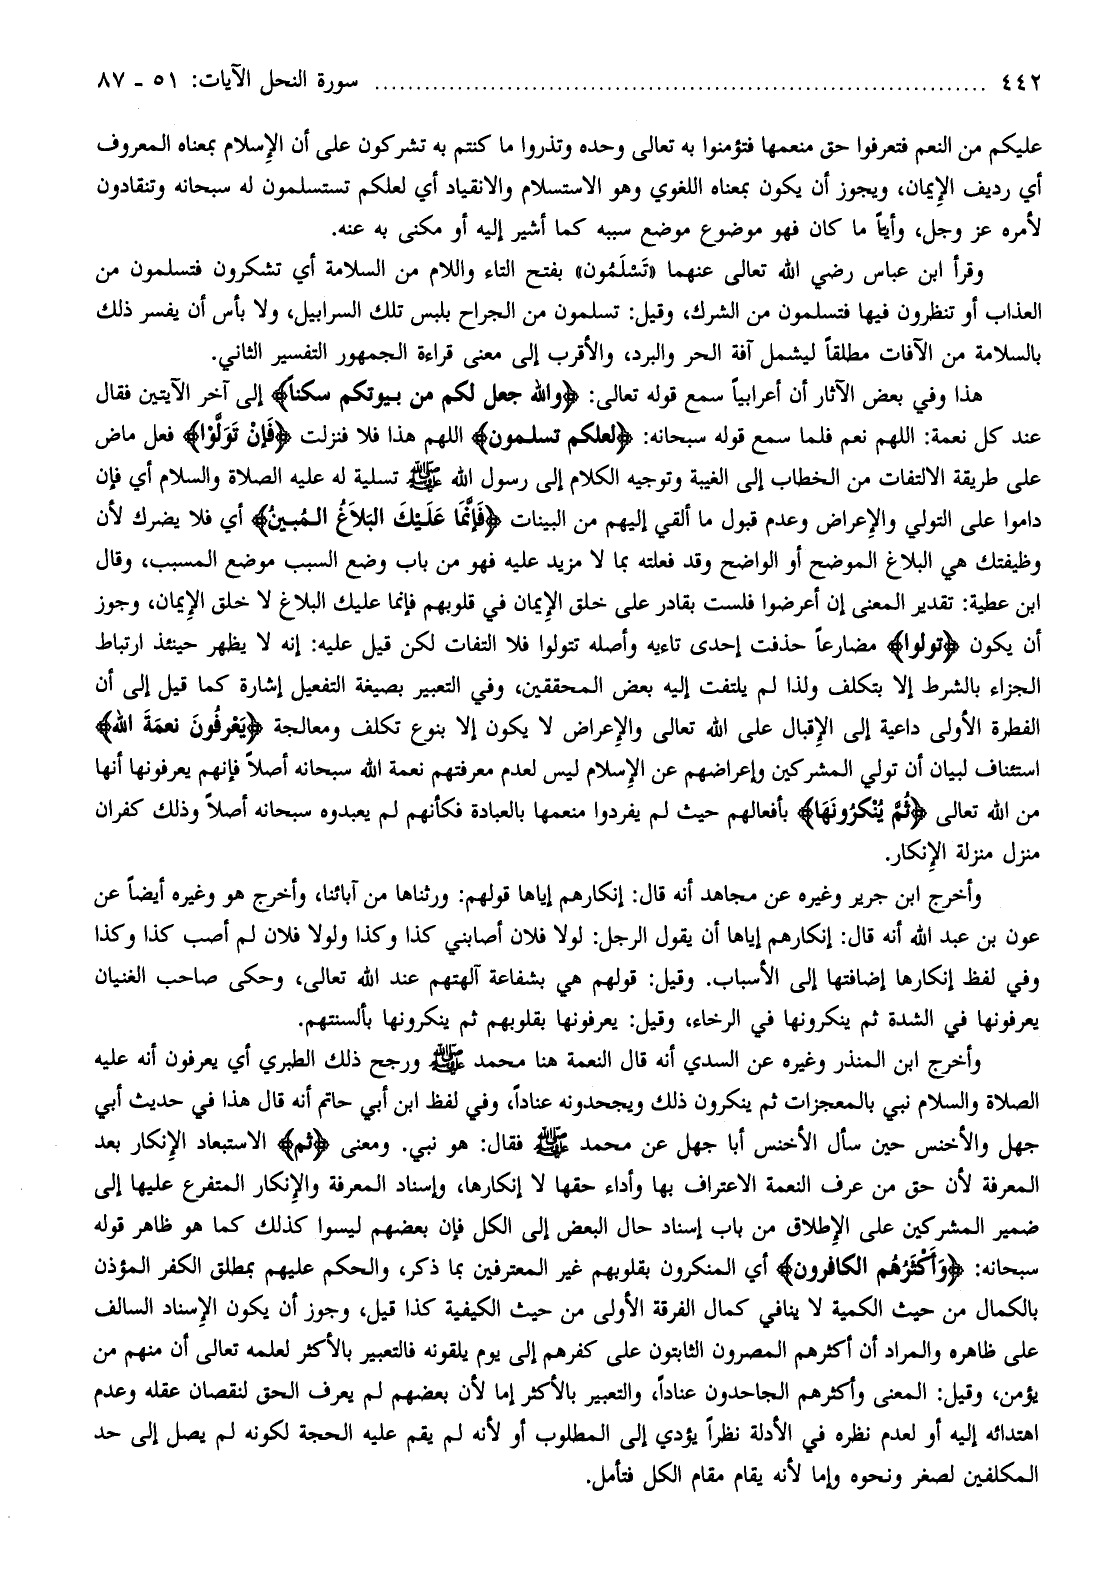 ٤٤٢ ........................................................ سورة النحل الآيات: ٥١ ـ ٨٧
عليكم من النعم فتعرفوا حق منعمها فتؤمنوا به تعالى وحده وتذروا ما كنتم به تشركون على أن الإسلام بمعناه المعروف
أي رديف الإيمان، ويجوز أن يكون بمعناه اللغوي وهو الاستسلام والانقياد أي لعلكم تستسلمون له سبحانه وتنقادون
لأمره عز وجل، وأياً ما كان فهو موضوع موضع سببه كما أشير إليه أو مكنى به عنه.
وقرأ ابن عباس رضي الله تعالى عنهما «تَسْلَمُون» بفتح التاء واللام من السلامة أي تشكرون فتسلمون من
العذاب أو تنظرون فيها فتسلمون من الشرك، وقيل: تسلمون من الجراح بلبس تلك السرابيل، ولا بأس أن يفسر ذلك
بالسلامة من الآفات مطلقاً ليشمل آفة الحر والبرد، والأقرب إلى معنى قراءة الجمهور التفسير الثاني.
هذا وفي بعض الآثار أن أعرابياً سمع قوله تعالى: ﴿والله جعل لكم من بيوتكم سكناً﴾ إلى آخر الآيتين فقال
عند كل نعمة: اللهم نعم فلما سمع قوله سبحانه: ﴿لعلكم تسلمون﴾ اللهم هذا فلا فنزلت ﴿فَإنْ تَوَلَّوْا﴾ فعل ماض
على طريقة الالتفات من الخطاب إلى الغيبة وتوجيه الكلام إلى رسول الله ﷺ تسلية له عليه الصلاة والسلام أي فإن
داموا على التولي والإعراض وعدم قبول ما ألقي إليهم من البينات ﴿فَإنَّمَا عَلَيْكَ البَلاَغُ المُبينُ﴾ أي فلا يضرك لأن
وظيفتك هي البلاغ الموضح أو الواضح وقد فعلته بما لا مزيد عليه فهو من باب وضع السبب موضع المسبب، وقال
ابن عطية: تقدير المعنى إن أعرضوا فلست بقادر على خلق الإيمان في قلوبهم فإنما عليك البلاغ لا خلق الإيمان، وجوز
أن يكون ﴿تولوا﴾ مضارعاً حذفت إحدى تاءيه وأصله تتولوا فلا التفات لكن قيل عليه: إنه لا يظهر حينئذ ارتباط
الجزاء بالشرط إلا بتكلف ولذا لم يلتفت إليه بعض المحققين، وفي التعبير بصيغة التفعيل إشارة كما قيل إلى أن
الفطرة الأولى داعية إلى الإقبال على الله تعالى والإعراض لا يكون إلا بنوع تكلف ومعالجة ﴿يَعْرفُونَ نعمَةَ الله﴾
استئناف لبيان أن تولي المشركين وإعراضهم عن الإسلام ليس لعدم معرفتهم نعمة الله سبحانه أصلاً فإنهم يعرفونها أنها
من الله تعالى ﴿ثُمَّ يُنْكرُونَهَا﴾ بأفعالهم حيث لم يفردوا منعمها بالعبادة فكأنهم لم يعبدوه سبحانه أصلاً وذلك كفران
منزل منزلة الإنكار.
وأخرج ابن جرير وغيره عن مجاهد أنه قال: إنكارهم إياها قولهم: ورثناها من آبائنا، وأخرج هو وغيره أيضاً عن
عون بن عبد الله أنه قال: إنكارهم إياها أن يقول الرجل: لولا فلان أصابني كذا وكذا ولولا فلان لم أصب كذا وكذا
وفي لفظ إنكارها إضافتها إلى الأسباب. وقيل: قولهم هي بشفاعة آلهتهم عند الله تعالى، وحكى صاحب الغنيان
يعرفونها في الشدة ثم ينكرونها في الرخاء، وقيل: يعرفونها بقلوبهم ثم ينكرونها بألسنتهم.
وأخرج ابن المنذر وغيره عن السدي أنه قال النعمة هنا محمد ﷺ ورجح ذلك الطبري أي يعرفون أنه عليه
الصلاة والسلام نبي بالمعجزات ثم ينكرون ذلك ويجحدونه عناداً، وفي لفظ ابن أبي حاتم أنه قال هذا في حديث أبي
جهل والأخنس حين سأل الأخنس أبا جهل عن محمد ﷺ فقال: هو نبي. ومعنى ﴿ثم﴾ الاستبعاد الإنكار بعد
المعرفة لأن حق من عرف النعمة الاعتراف بها وأداء حقها لا إنكارها، وإسناد المعرفة والإنكار المتفرع عليها إلى
ضمير المشركين على الإطلاق من باب إسناد حال البعض إلى الكل فإن بعضهم ليسوا كذلك كما هو ظاهر قوله
سبحانه: ﴿وَأَكْثَرُهُم الكافرون﴾ أي المنكرون بقلوبهم غير المعترفين بما ذكر، والحكم عليهم بمطلق الكفر المؤذن
بالكمال من حيث الكمية لا ينافي كمال الفرقة الأولى من حيث الكيفية كذا قيل، وجوز أن يكون الإسناد السالف
على ظاهره والمراد أن أكثرهم المصرون الثابتون على كفرهم إلى يوم يلقونه فالتعبير بالأكثر لعلمه تعالى أن منهم من
يؤمن، وقيل: المعنى وأكثرهم الجاحدون عناداً، والتعبير بالأكثر إما لأن بعضهم لم يعرف الحق لنقصان عقله وعدم
اهتدائه إليه أو لعدم نظره في الأدلة نظراً يؤدي إلى المطلوب أو لأنه لم يقم عليه الحجة لكونه لم يصل إلى حد
المكلفين لصغر ونحوه وإما لأنه يقام مقام الكل فتأمل.